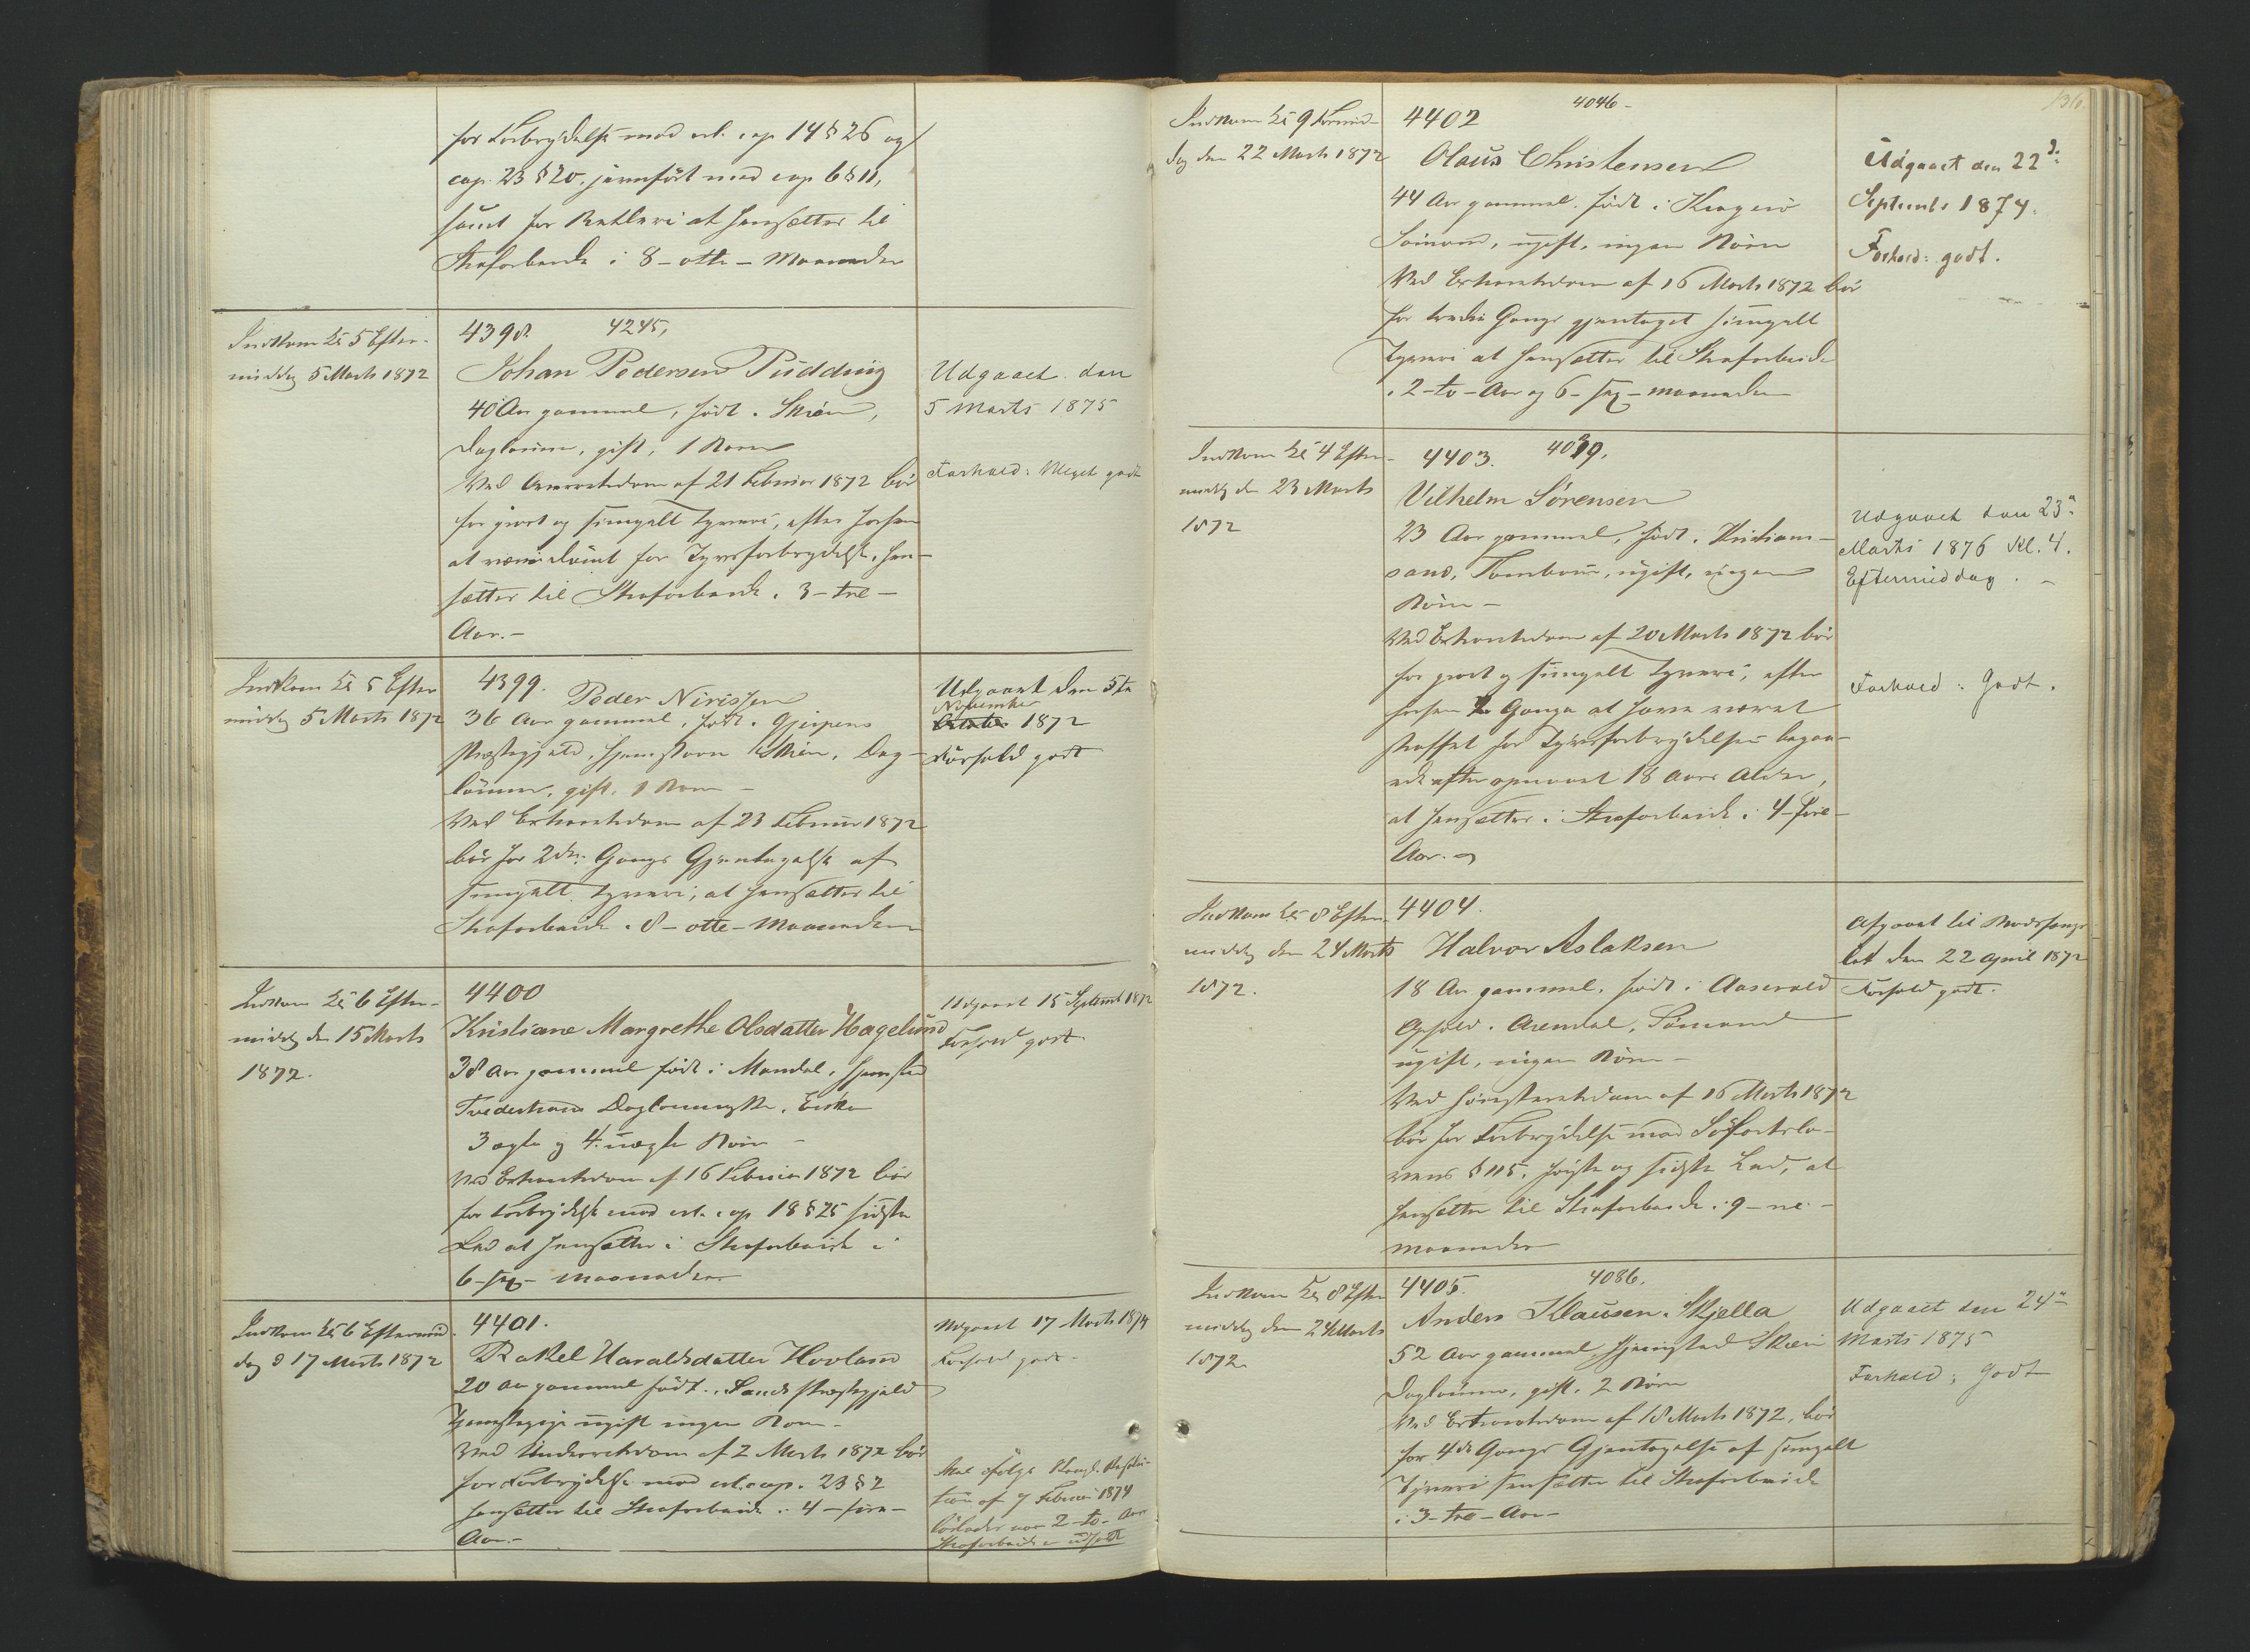 for Forbrydelse mod crl. cap 14 § 26 og
cap. 23 § 20, jævnført med cap 6 § 11,
samt for Betleri at hensættes til
Strafarbeide i 8 - otte - Maaneder
Indkom Kl 5 Efter-
middag 5 Marts 1872
4398. 4245,
Johan Pedersen Pudding
40 Aar gammel, født i Skien,
Daglønner, gift, 1 Barn
Ved Overretsdom af 21 Februar 1872 bør
for grovt og simpelt Tyveri, efter forhen
at være dømt for Tyvsforbrydelse, hen-
sættes til Strafarbeide i 3 - tre -
Aar. -
Udgaaet den
5 Marts 1875
Forhold: Meget godt
Indkom Kl 5 Efter
middag 5 Marts 1872
4399.
Peder Nirissen
36 Aar gammel, født i Gjerpens
Præstegjæld, Hjemstavn Skien, Dag-
lønner, gift, 1 Barn -
Ved Extraretsdom af 23 Februar 1872
bør for 2den Gangs Gjentagelse af
simpelt Tyveri, at hensættes til
Strafarbeide i 8 - otte - Maaneder
Udgaaet den 5te
November
Oktober 1872
Forhold godt
Indkom Kl 6 Efter-
middag den 15 Marts
1872.
4400
Kristiane Margrethe Olsdatter Hagelund
38 Aar gammel født i Mandal, Hjemsted
Tvedestrand Daglønnerske, Enke
3 ægte og 4 uægte Børn -
Ved Extraretsdom af 16 Februar 1872 bør
for Forbrydelse mod crl. cap 18 § 25 sidste
Led at hensættes i Strafarbeide i
6 - sex - Maaneder
Udgaaet 15 Septemb 1872
Forhold godt
Indkom Kl 6 Eftermid
dag d 17 Marts 1872
4401.
Rakel Haraldsdatter Hovland
20 Aar gammel født i Sands Præstegjæld
Tjenestepige ugift ingen Børn -
Ved Underretsdom af 2 Marts 1872 bør
for Forbrydelse mod crl. cap. 23 § 2
hensættes til Strafarbeide i 4 - fire -
Aar. -
Udgaaet 17 Marts 1874
Forhold godt -
Skal ifølge Kongl. Resolu-
tion af 7 Februar 1874
løslades naar 2 - to - Aars
Strafarbeide er udholdt
Indkom Kl 9 Formid-
dag den 22 Marts 1872
4402 4046 -
Olaus Christensen
44 Aar gammel, født i Kragerø
Sømand, ugift, ingen Børn
Ved Extraretsdom af 16 Marts 1872 bør
for tredie Gangs gjentaget simpelt
Tyveri at hensættes til Strafarbeide
i 2 - to - Aar og 6 - sex - Maaneder
Udgaaet den 22d:
Septembr 1874.
Forhold: godt.
Indkom Kl 4 Efter-
middag den 23 Marts
1872
4403. 4039.
Vilhelm Sørensen
23 Aar gammel, født i Kristians-
sand, Tømbour, ugift, ingen
Børn -
Ved Extraretsdom af 20 Marts 1872 bør
for grovt og simpelt Tyveri, efter
forhen 2 Gange at have været
straffet for Tyvsforbrydelser begaa-
ede efter opnaaet 18 Aars Alder,
at hensættes i Strafarbeide i 4 - fire -
Aar. -
Udgaaet den 23de
Marts 1876 Kl. 4.
Eftermiddag. -
Forhold: Godt.
Indkom Kl 8 Efter-
middag den 24 Marts
1872.
4404.
Halvor Aslaksen
18 Aar gammel, født i Aaserald
Ophold i Arendal, Sømand
ugift, ingen Børn -
Ved Høiesteretsdom af 16 Marts 1872
bør for Forbrydelse mod Søfartslo-
vens § 115, første og sidste Led, at
hensættes til Strafarbeide i 9 - ni -
Maaneder
Afgaaet til Bodsfæng
let den 22 April 1872
Forhold godt.
Indkom Kl 8 Efter
middag den 24 Marts
1872
4405. 4086.
Anders Klausen Skjella
52 Aar gammel, Hjemsted Skien
Daglønner, gift, 2 Børn
Ved Extraretsdom af 18 Marts 1872, bør
for 4de Gangs Gjentagelse af simpelt
Tyveri hensættes til Strafarbeide
i 3 - tre - Aar -
Udgaaet den 24de
Marts 1875
Forhold: Godt